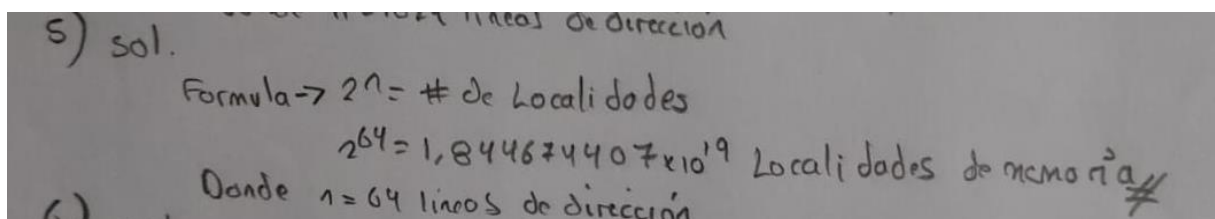 líneas de dirección
5) sol.
Formula → 2^n = # de Localidades
2^64 = 1,844674407x10^19 Localidades de memoria
Donde n = 64 lineas de dirección
6)